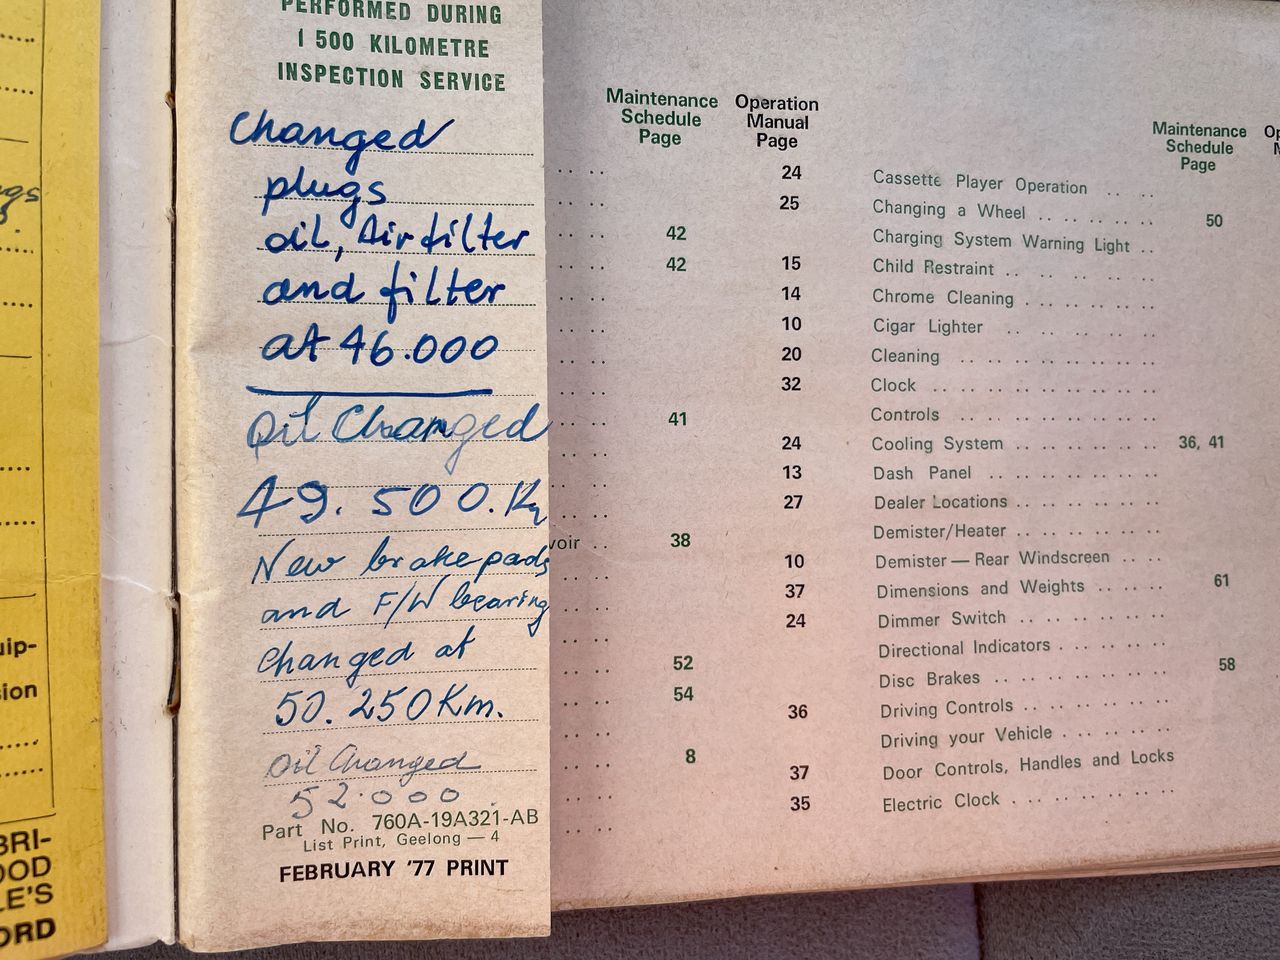 gs
uip-
sion
BRI-
OOD
LE'S
ORD
PERFORMED DURING
1 500 KILOMETRE
INSPECTION SERVICE
Changed
plugs
oil, Air filter
and filter
at 46.000
Oil Changed
49.500.Km
New brake pads
and F/W bearing
changed at
50.250Km.
Oil Changed
52.000.
Part No. 760A-19A321-AB
List Print, Geelong — 4
FEBRUARY '77 PRINT
Maintenance
Schedule
Page
Operation
Manual
Page
.. .. 24
25
.... 42
.... 42 15
.... 14
.... 10
.... 20
.... 32
.... 41
.... 24
.... 13
.... 27
voir .. 38
.... 10
.... 37
.... 24
.... 52
.... 54
.... 36
.... 8
.... 37
.... 35
....
Maintenance
Schedule
Page
Cassette Player Operation .. ..
Changing a Wheel .. .. .. .. 50
Charging System Warning Light ..
Child Restraint .. .. .. ..
Chrome Cleaning .. .. .. .. ..
Cigar Lighter .. .. .. .. ..
Cleaning .. .. .. .. .. .. ..
Clock .. .. .. .. .. .. .. ..
Controls .. .. .. .. .. .. ..
Cooling System .. .. .. .. .. 36, 41
Dash Panel .. .. .. .. .. ..
Dealer Locations .. .. .. .. ..
Demister/Heater .. .. .. .. ..
Demister — Rear Windscreen .. ..
Dimensions and Weights .. .. .. 61
Dimmer Switch .. .. .. .. ..
Directional Indicators .. .. .. ..
Disc Brakes .. .. .. .. .. .. 58
Driving Controls .. .. .. .. ..
Driving your Vehicle .. .. .. ..
Door Controls, Handles and Locks
Electric Clock .. .. .. .. .. ..